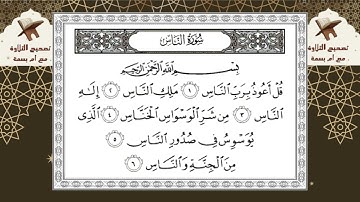 تصحيح التلاوة
مع أم بسمة
تصحيح التلاوة
مع أم بسمة
سُورَةُ النَّاسِ
بِسْمِ اللَّهِ الرَّحْمَٰنِ الرَّحِيمِ
قُلْ أَعُوذُ بِرَبِّ النَّاسِ ١ مَلِكِ النَّاسِ ٢ إِلَٰهِ
النَّاسِ ٣ مِن شَرِّ الْوَسْوَاسِ الْخَنَّاسِ ٤ الَّذِي
يُوَسْوِسُ فِي صُدُورِ النَّاسِ ٥
مِنَ الْجِنَّةِ وَالنَّاسِ ٦